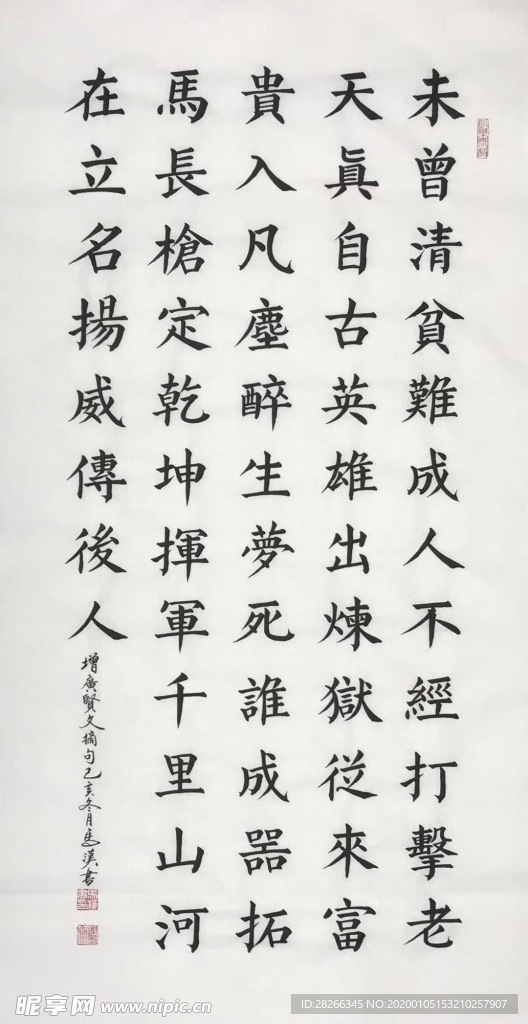 未曾清貧難成人不經打擊老
天眞自古英雄出煉獄從來富
貴入凡塵醉生夢死誰成器拓
馬長槍定乾坤揮軍千里山河
在立名揚威傳後人
增廣賢文摘句己亥冬月馬漢書
昵享网 www.nipic.cn
ID:28266345 NO:20200105153210257907